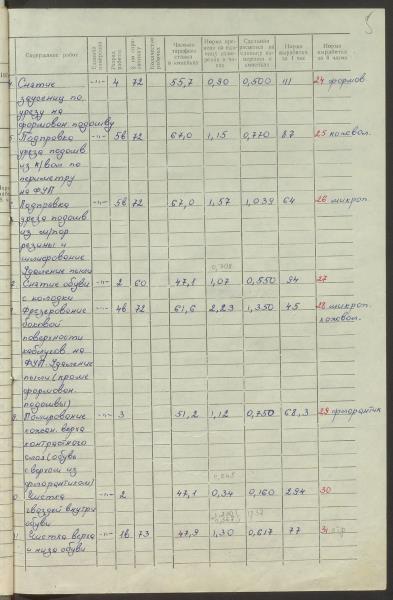 5
Содержание работ
Единица измерения
Разряд работы
Количество рабочих
Часовая тарифная ставка в копейках
Норма времени на единицу измерения в часах
Сдельная расценка на единицу измерения в копейках
Норма выработки за 1 час
Норма выработки за 8 часов
Снятие -"- 4 72 55,7 0,90 0,500 111 24 формов
заусениц по
урезу на
формован. подошву
Подправка -"- 5б 72 67,0 1,15 0,770 87 25 кожвол.
уреза подошв
из к/вол по
периметру
на ФУП
Подправка -"- 5б 72 67,0 1,57 1,039 64 26 микроп
уреза подошв
из м/пор
резины и
шлифование
Удаление пыли
0,708
Снятие обуви -"- 2 60 47,1 1,07 0,550 94 27
с колодки
Фрезерование -"- 4б 72 61,6 2,23 1,350 45 28 микроп.
боковой кожвол.
поверхности
каблуков на
ФУП. Удаление
пыли (кроме
формован.
подошвы)
Полирование -"- 3 51,2 1,12 0,750 68,3 29 флорантик
кожан. верха
контрастного
слоя (обувь
с верхом из
флорантиком)
0,245
Чистка -"- 2 47,1 0,34 0,160 294 30
гвоздей внутри
обуви
Чистка верха -"- 1б 73 47,9 1,30 0,617 77 31
и низа обуви